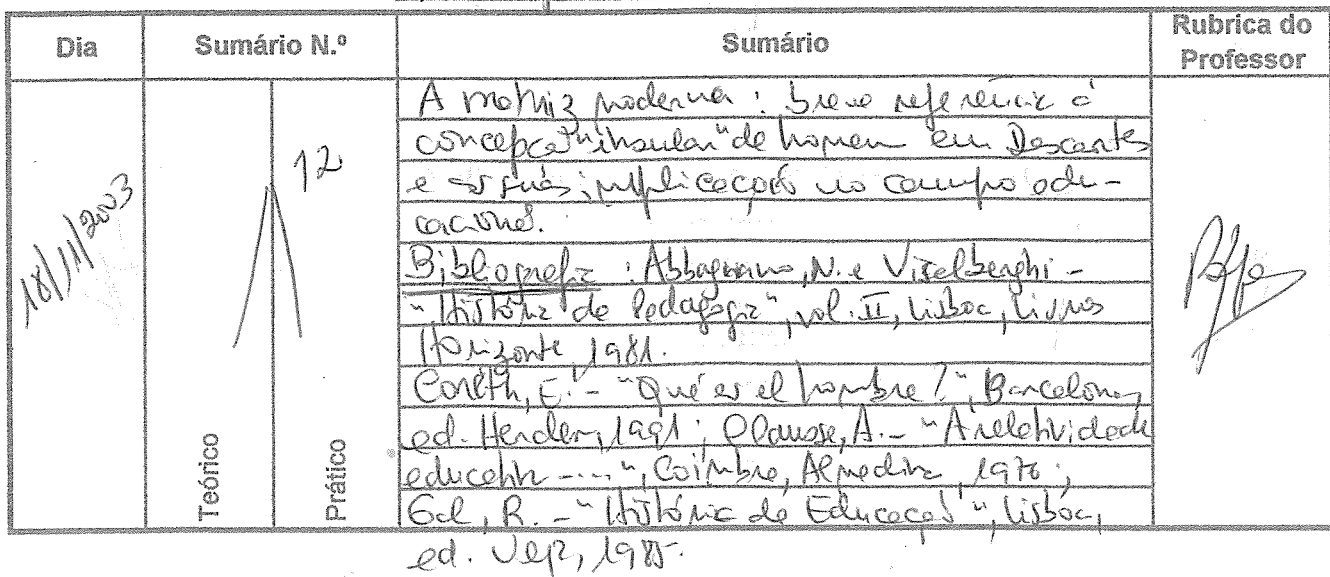 Dia
Sumário N.º
Sumário
Rubrica do
Professor
18/11/2003
12
Teórico
Prático
A matriz moderna : breve referência à
concepção "insular" de homem em Descartes
e as suas implicações no campo edu-
cacional.
Bibliografia : Abbagnano, N. e Visalberghi -
"História da Pedagogia", vol. II, Lisboa, Livros
Horizonte, 1981.
Coreth, E. - "Qué es el hombre?", Barcelona,
ed. Herder, 1991 ; Clausse, A. - "A relatividade
educativa ....", Coimbra, Almedina, 1976 ;
Gal, R. - "História da Educação", Lisboa,
ed. Vega, 1985.